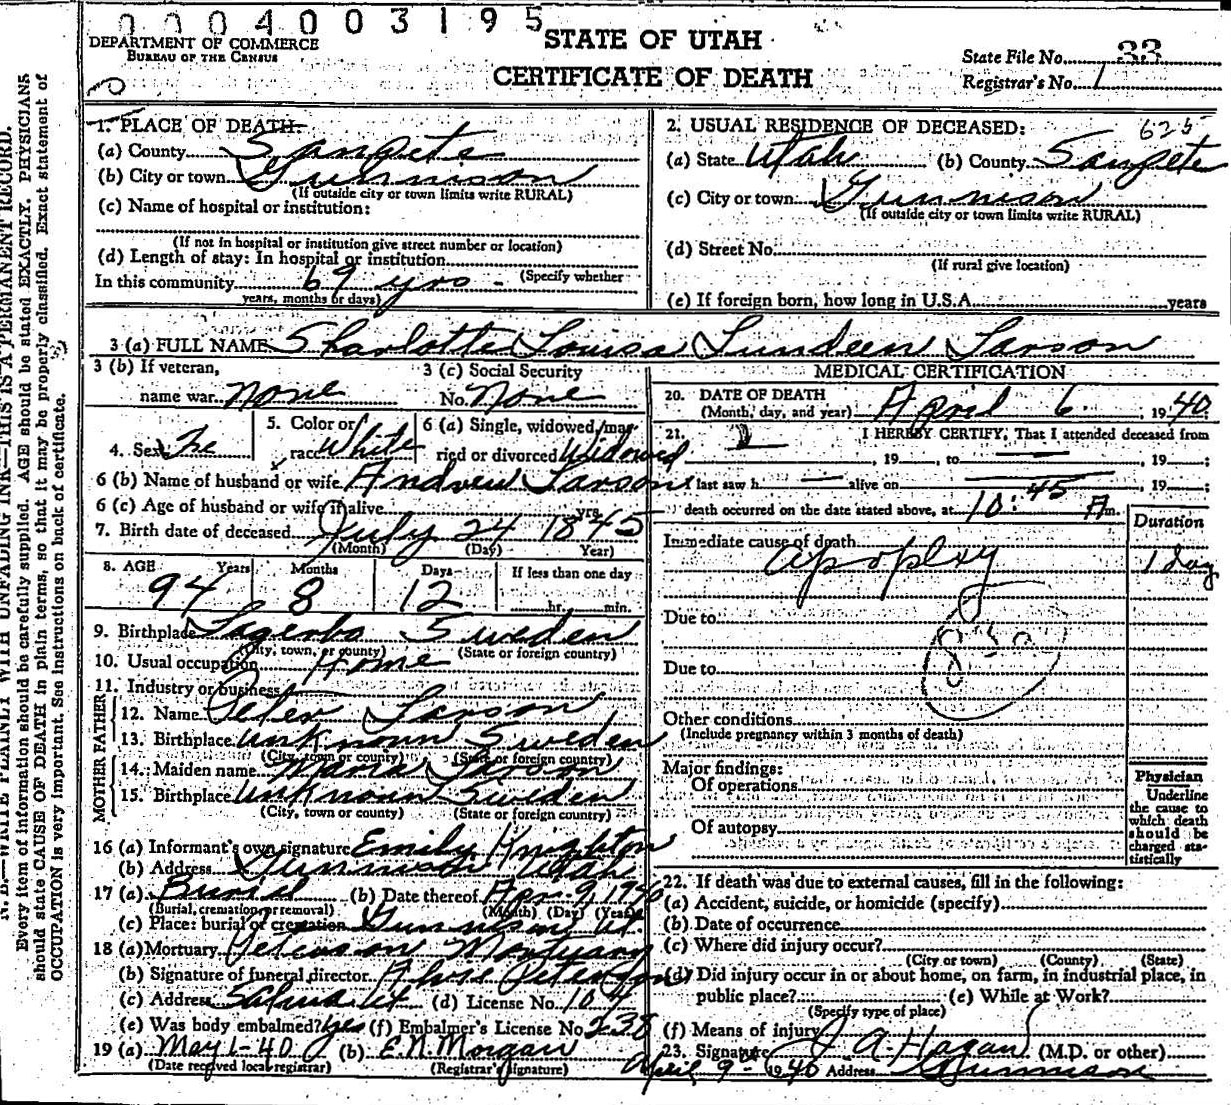 0004003195
DEPARTMENT OF COMMERCE
BUREAU OF THE CENSUS
STATE OF UTAH
CERTIFICATE OF DEATH
State File No. 33
Registrar's No. 1
N. B.—WRITE PLAINLY WITH UNFADING INK—THIS IS A PERMANENT RECORD.
Every item of information should be carefully supplied. AGE should be stated EXACTLY. PHYSICIANS
should state CAUSE OF DEATH in plain terms, so that it may be properly classified. Exact statement of
OCCUPATION is very important. See instructions on back of certificate.
1. PLACE OF DEATH:
(a) County Sanpete
(b) City or town Gunnison
(If outside city or town limits write RURAL)
(c) Name of hospital or institution:
(If not in hospital or institution give street number or location)
(d) Length of stay: In hospital or institution
In this community 69 yrs - (Specify whether
years, months or days)
2. USUAL RESIDENCE OF DECEASED: 625
(a) State Utah (b) County Sanpete
(c) City or town: Gunnison
(If outside city or town limits write RURAL)
(d) Street No.
(If rural give location)
(e) If foreign born, how long in U.S.A. years
3 (a) FULL NAME Sharlotte Louisa Lundeen Larson
3 (b) If veteran, name war none
3 (c) Social Security No. None
4. Sex Fe
5. Color or race White
6 (a) Single, widowed, married or divorced Widowed
6 (b) Name of husband or wife Andrew Larson
6 (c) Age of husband or wife if alive yrs.
7. Birth date of deceased July 24 1845
(Month) (Day) Year)
8. AGE Years Months Days If less than one day
94 8 12 hr. min.
9. Birthplace Sweden
(City, town, or county) (State or foreign country)
10. Usual occupation Home
11. Industry or business
FATHER
12. Name Peter Larson
13. Birthplace Unknown Sweden
(City, town or county) (State or foreign country)
MOTHER
14. Maiden name Maria Larson
15. Birthplace Unknown Sweden
(City, town or county) (State or foreign country)
16 (a) Informant's own signature Emily Knighton
(b) Address Gunnison Utah
17 (a) Burial (b) Date thereof Apr 9, 1940
(Burial, cremation or removal) (Month) (Day) (Year)
(c) Place: burial or cremation Gunnison Ut.
18 (a) Mortuary Peterson Mortuary
(b) Signature of funeral director Peterson
(c) Address Salina Ut (d) License No. 104
(e) Was body embalmed? Yes (f) Embalmer's License No. 238
19 (a) May 1-40 (b) E.N. Morgan
(Date received local registrar) (Registrar's signature)
MEDICAL CERTIFICATION
20. DATE OF DEATH
(Month, day, and year) April 6, 1940
21. I HEREBY CERTIFY, That I attended deceased from
, 19 , to , 19 ;
I last saw h alive on , 19 ;
death occurred on the date stated above, at 10:45 A m.
Duration
Immediate cause of death
apoplexy 1 day
Due to
Due to
Other conditions
(Include pregnancy within 3 months of death)
Major findings:
Of operations
Of autopsy
Physician
Underline
the cause to
which death
should be
charged sta-
tistically
22. If death was due to external causes, fill in the following:
(a) Accident, suicide, or homicide (specify)
(b) Date of occurrence
(c) Where did injury occur?
(City or town) (County) (State)
(d) Did injury occur in or about home, on farm, in industrial place, in
public place? (e) While at Work?
(Specify type of place)
(f) Means of injury
23. Signature J. A. Hagan (M.D. or other)
April 9 1940 Address Gunnison